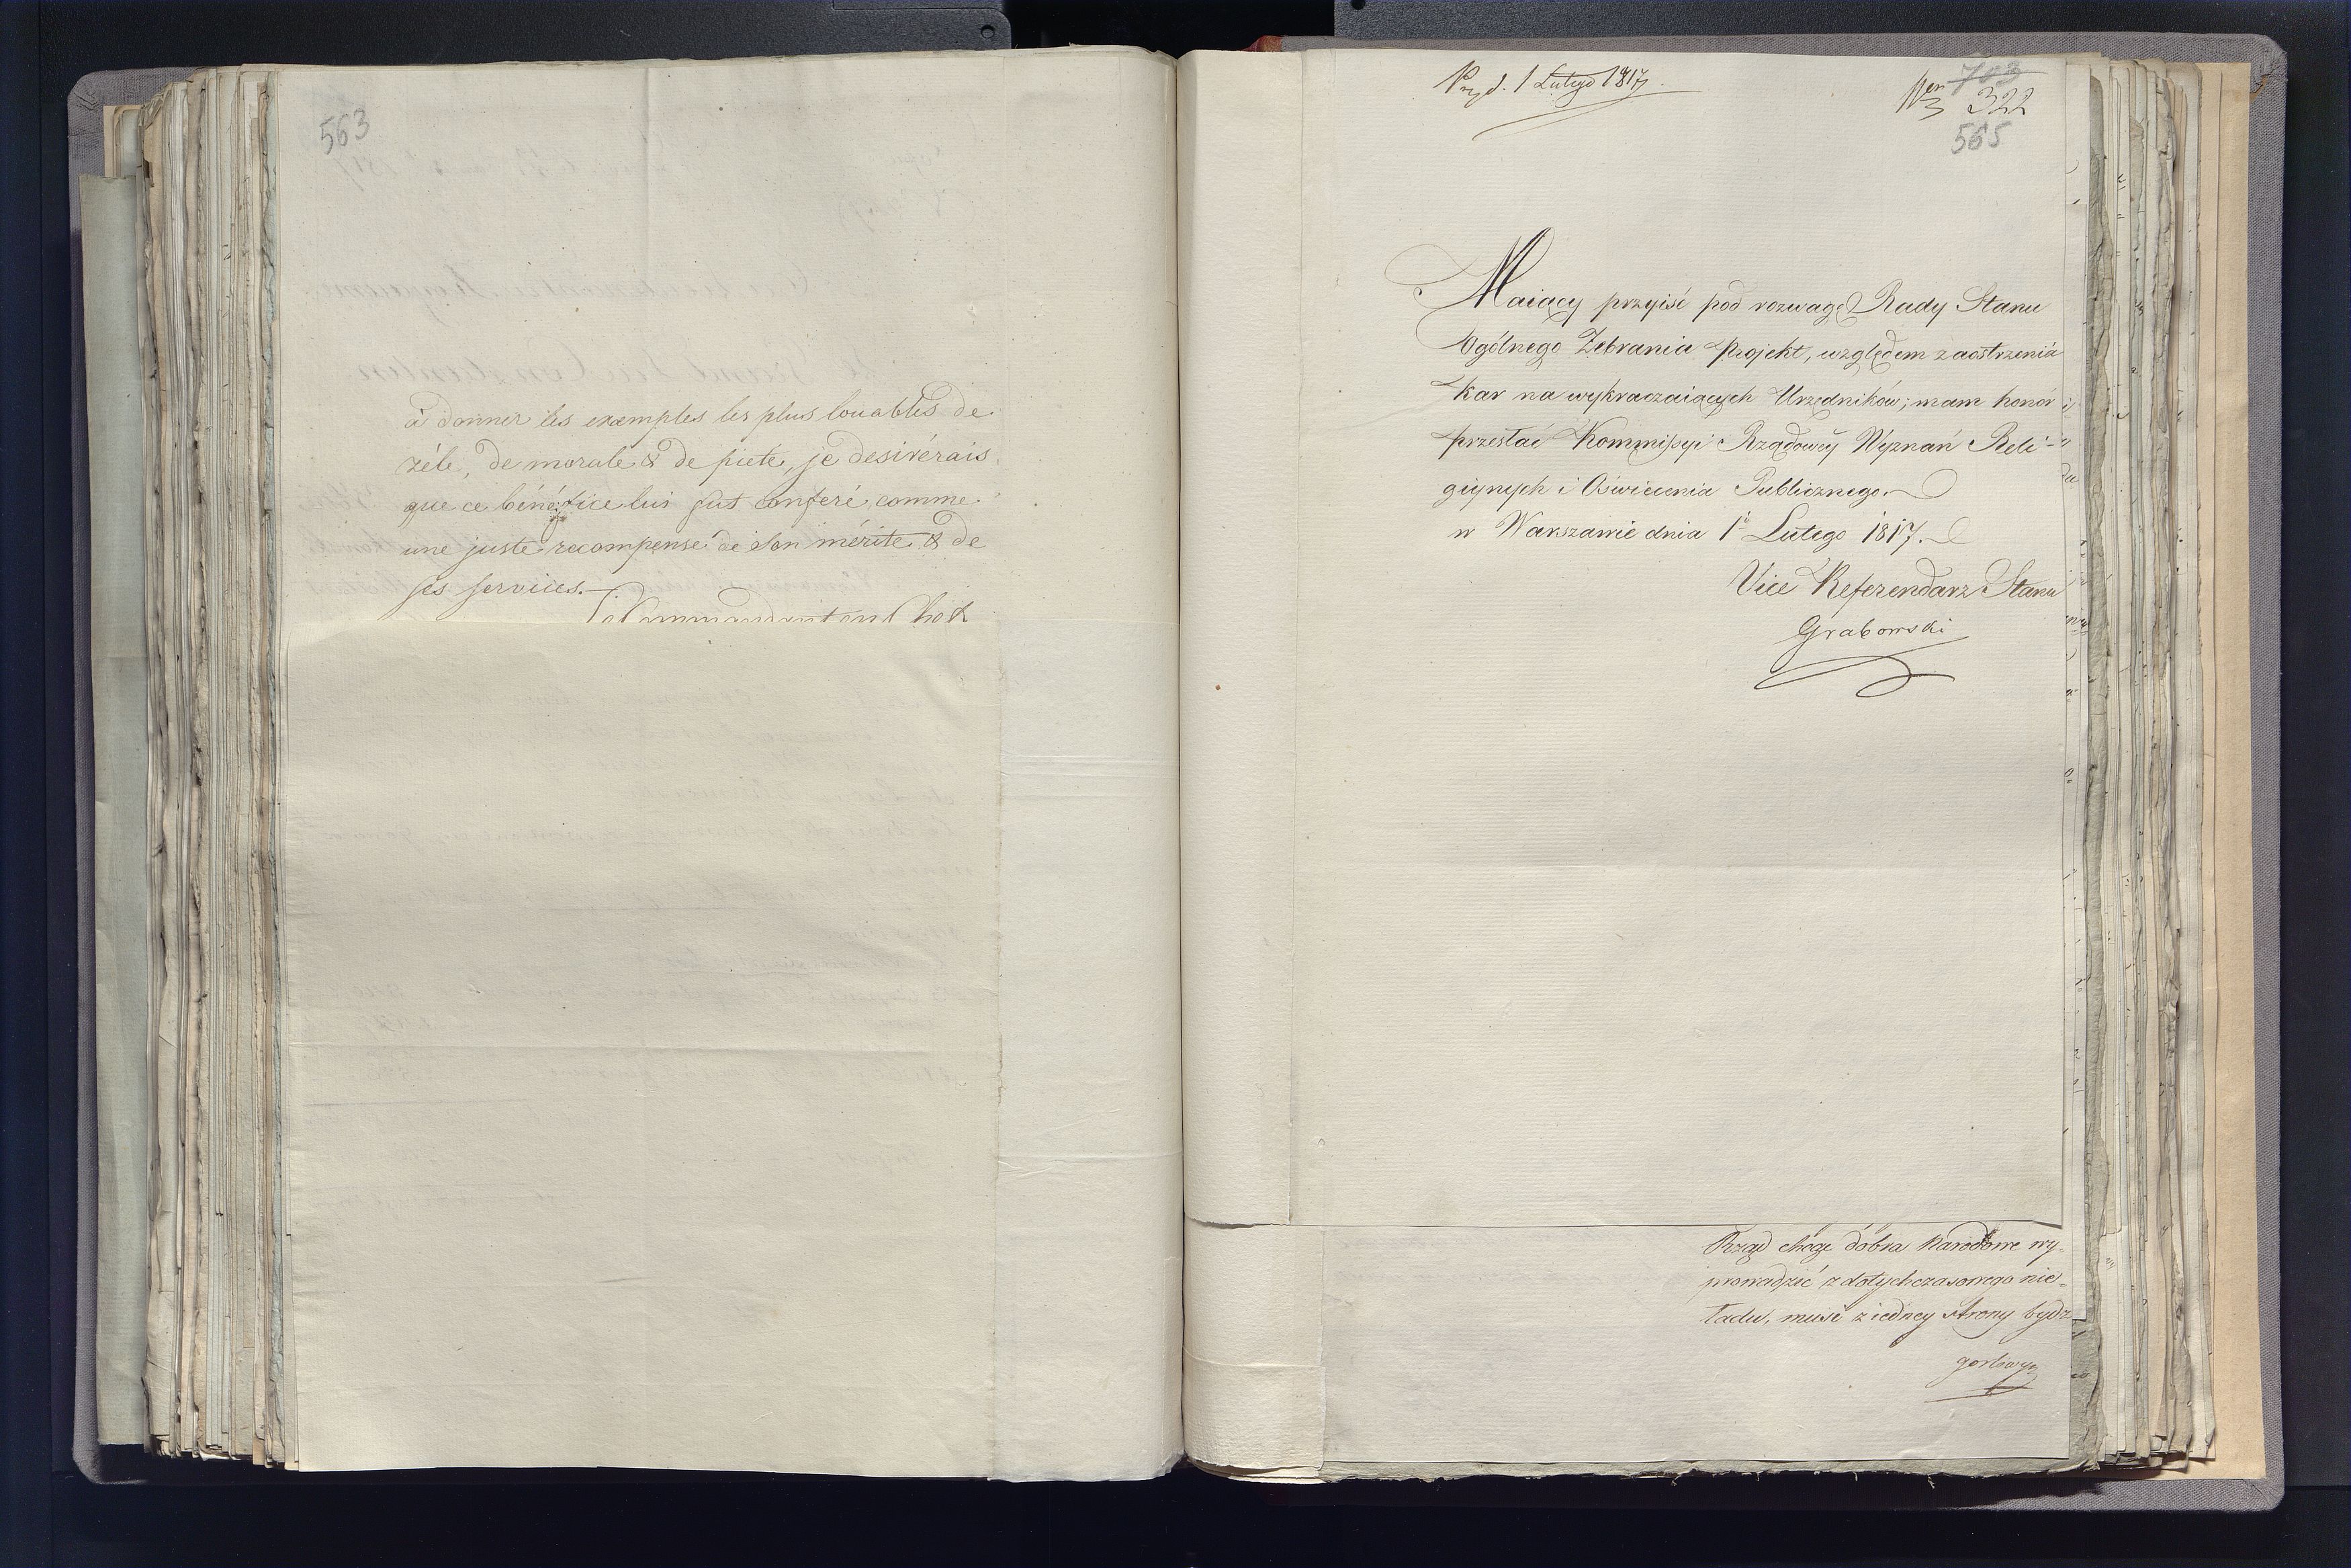 563
à donner les exemples les plus louables de
zéle, de morale & de pieté, je desirérais
que ce bénéfice lui fut conferé comme
une juste recompense de son mérite & de
ses services.
Le Commandant en Chef
Przyd. 1 Lutego 1817.
703
Ner 322
565
Maiący przyiść pod rozwagę Rady Stanu
Ogólnego Zebrania Projekt, względem zaostrzenia
kar na wykraczaiących Urzędników; mam honor
przesłać Kommissyi Rządowey Wyznań Reli-
giynych i Oświecenia Publicznego.
w Warszawie dnia 1o Lutego 1817.
Vice Referendarz Stanu
Grabowski
Rząd chcąc dobra Narodowe wy-
prowadzić z dotychczasowego nie-
ładu, musi z iedney strony bydz
gorliwym